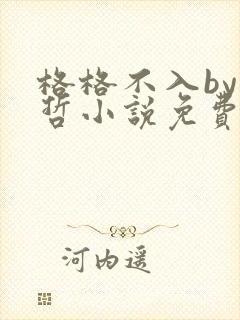 格格不入by
哲小說免費
河内遥